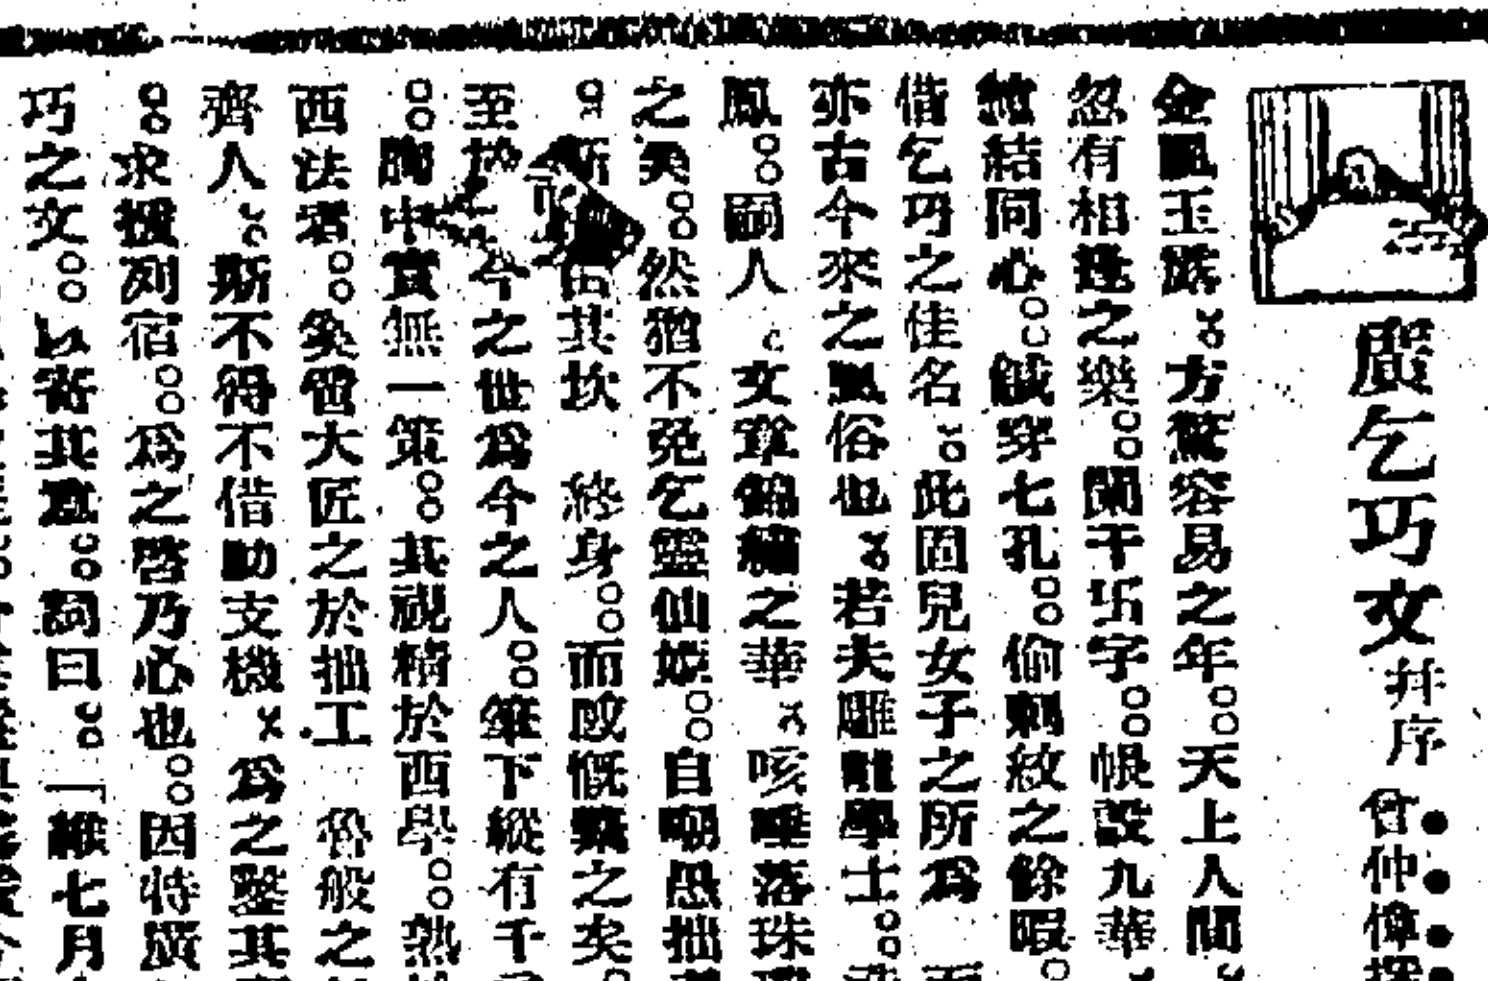 廣乞巧文 幷序 曾仲偉擇
金風玉露方驚容易之年天上人間
忽有相逢之樂闌干乐字帳設九華
結同心鍼穿七孔偷刺紋之餘暇
借乞巧之佳名此固兒女子之所爲
亦古今來之風俗也若夫雕龍學士
鳳嗣人文章錦繡之華咳唾落珠
之美然猶不免乞靈仙娥自嘲愚拙
斯其坎終身而感慨繫之矣
至於今之世爲今之人筆下縱有千
胸中實無一策其視精於西學熟
西法者奚啻大匠之於拙工般之
齊人斯不得不借助支機爲之鑿其
求援列宿爲之啓乃心也因特廣
巧之文以寄其意詞曰「維七月